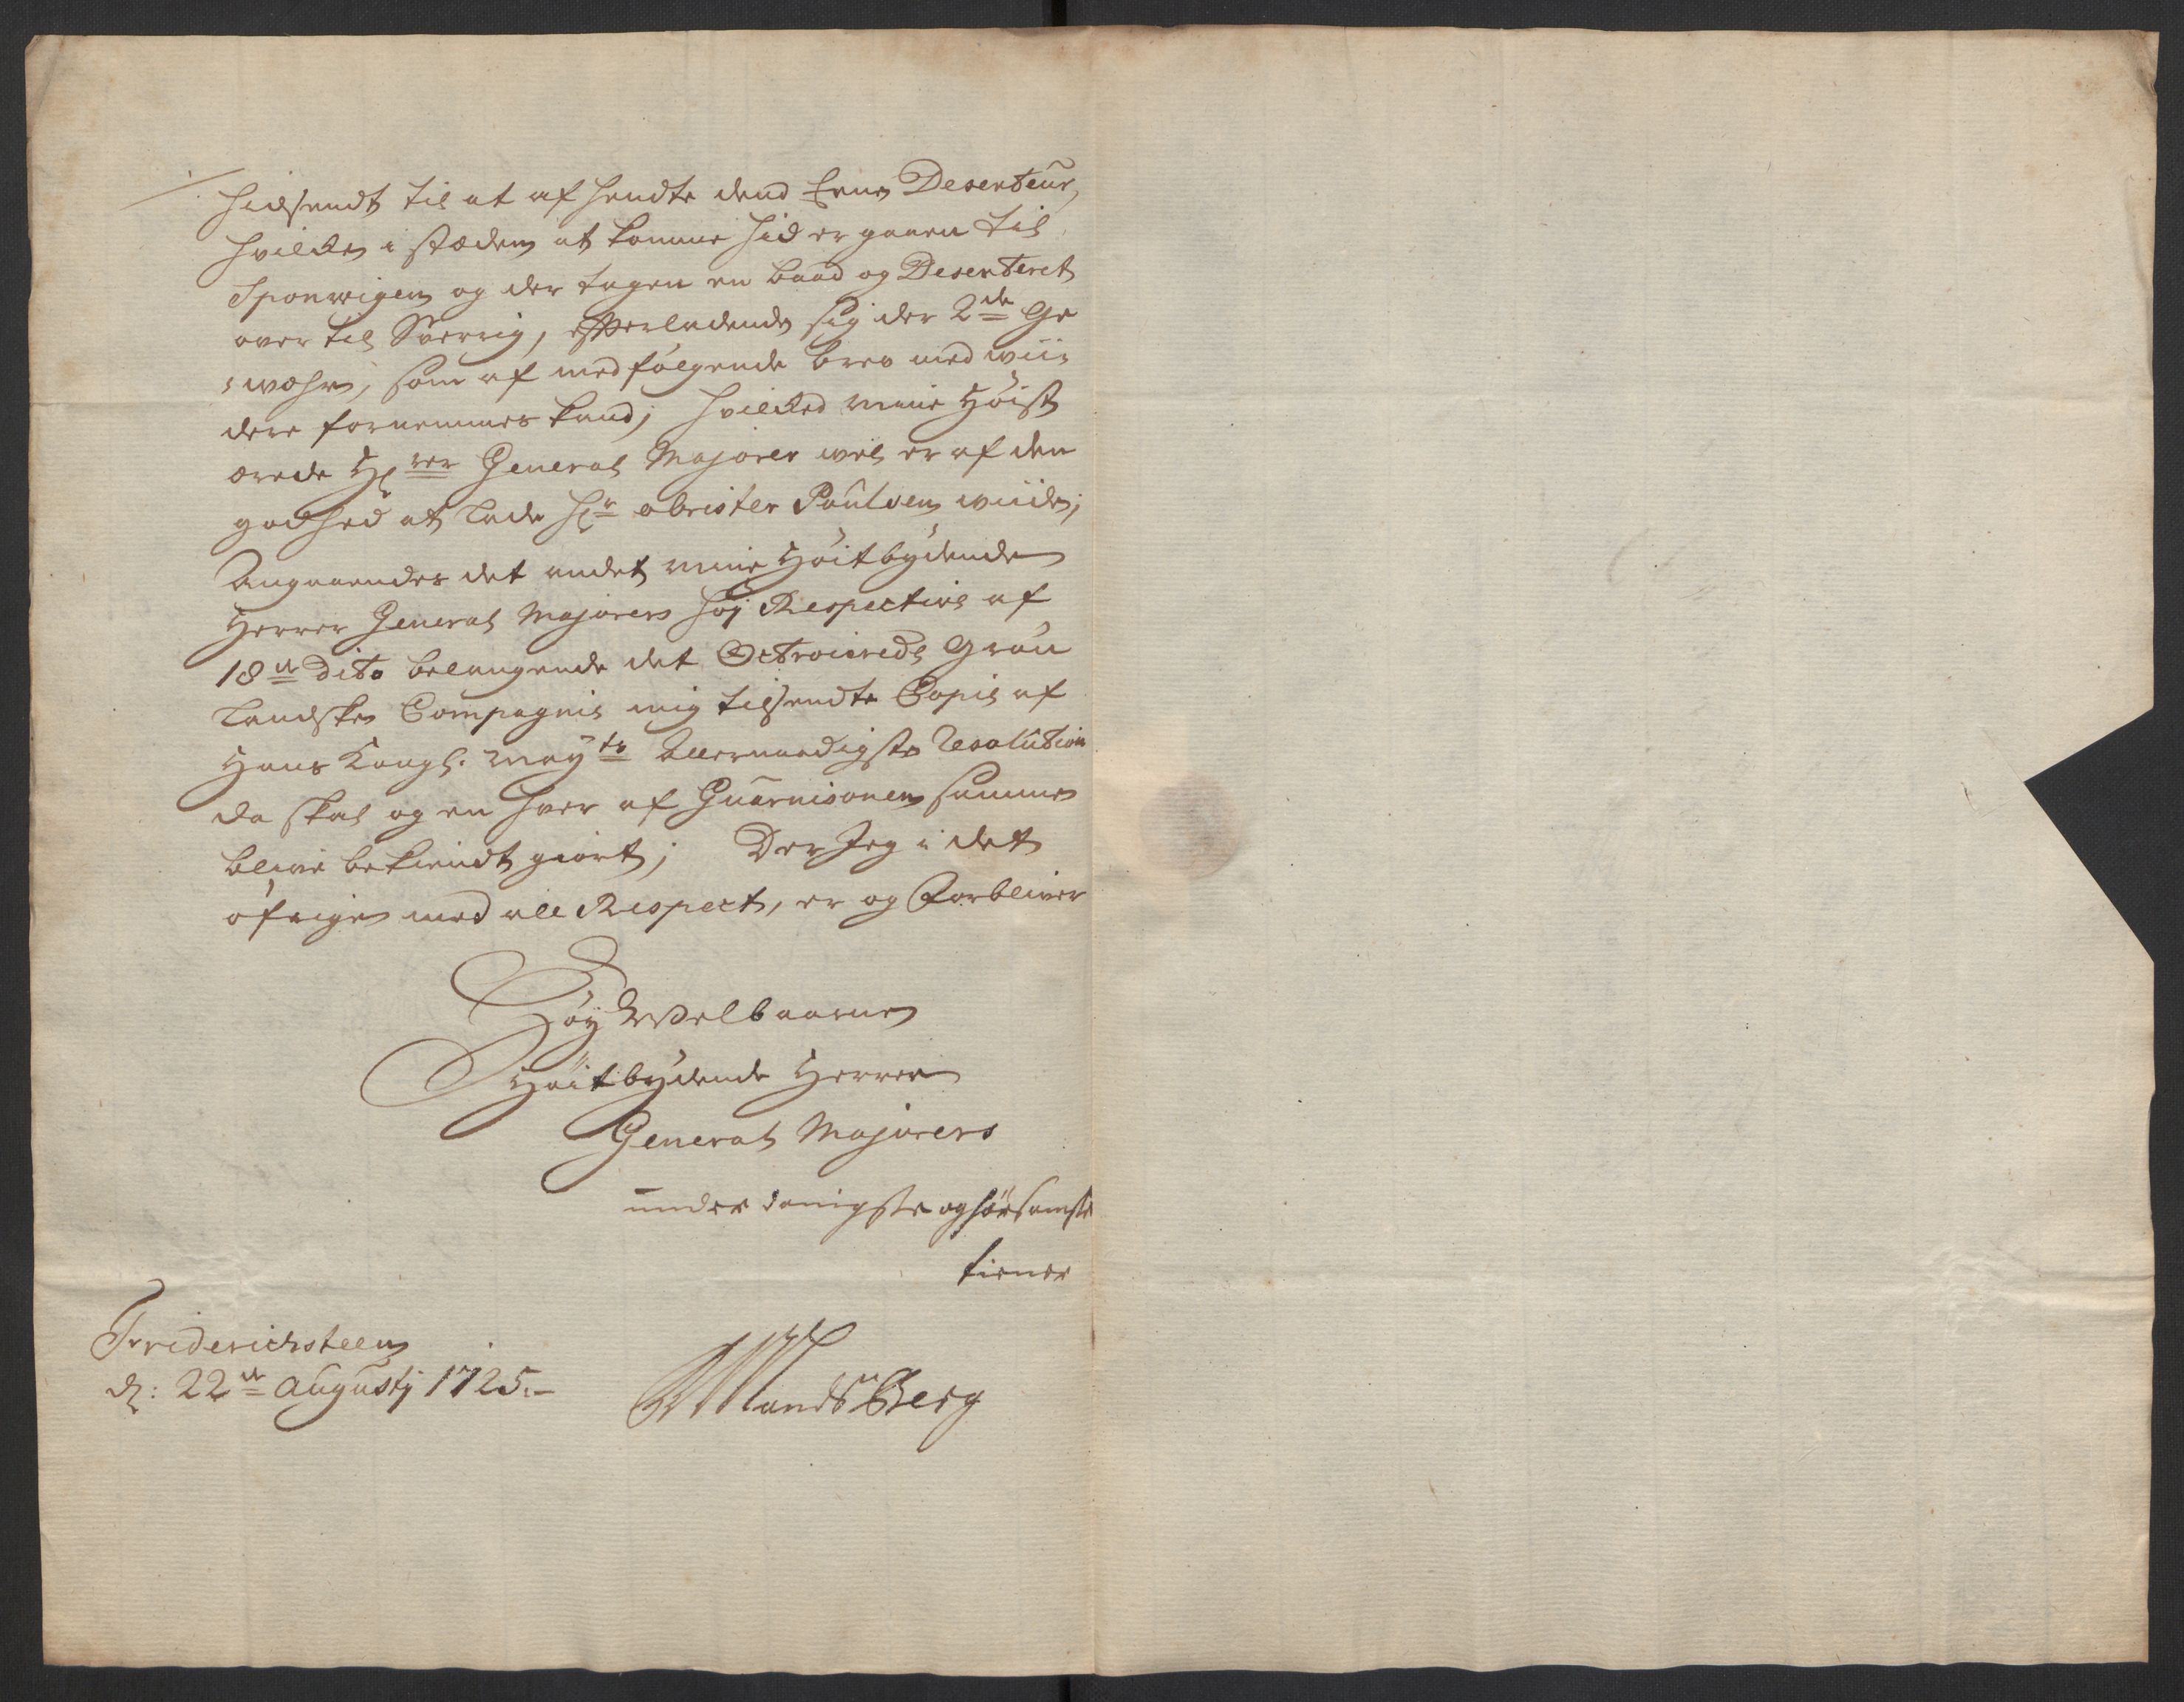 hidsendt til at af hendte dend Eene Deserteur,
hvilken i stæden at komme hid er gaaen til
Sponwigen og der tagen en baad og Deserteret
over til Sverrig, efterladende sig der 2de Ge
-wæhr, som af med følgende brev med wii-
dere fornemmes kand; hvilked mine Høist
ærede Hrrer General Majorer wel er af den
godhed at lade Hr obrister Poulsen wiide;
Angaaendes det andet mine Høitbydende
Herrer General Majorers høj Respective af
18de Dito belangende det Octroierede Grøn
landske Compagnie mig tilsendte Copie af
Hans Kongl: Mayts Allernaadigste Resolution
da skal og en hver af Guarnisonen samme
blive bekiendt giort; Der Jeg i det
øfrige med all Respect, er og Forbliver
Høy Edle Welbaarne
Høitbydende Herrer
General Majorers
underdanigste og hørsamste
tiener
Friderichsteen
d: 22de Augustj 1725.
Landtberg